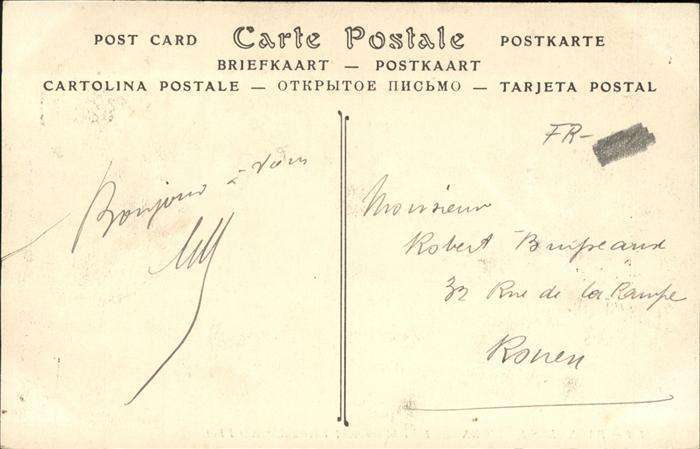 POST CARD Carte Postale POSTKARTE
BRIEFKAART — POSTKAART
CARTOLINA POSTALE — ОТКРЫТОЕ ПИСЬМО — TARJETA POSTAL
FR-
Bonjour à
Monsieur
Robert
32 Rue de la Rampe
Rouen